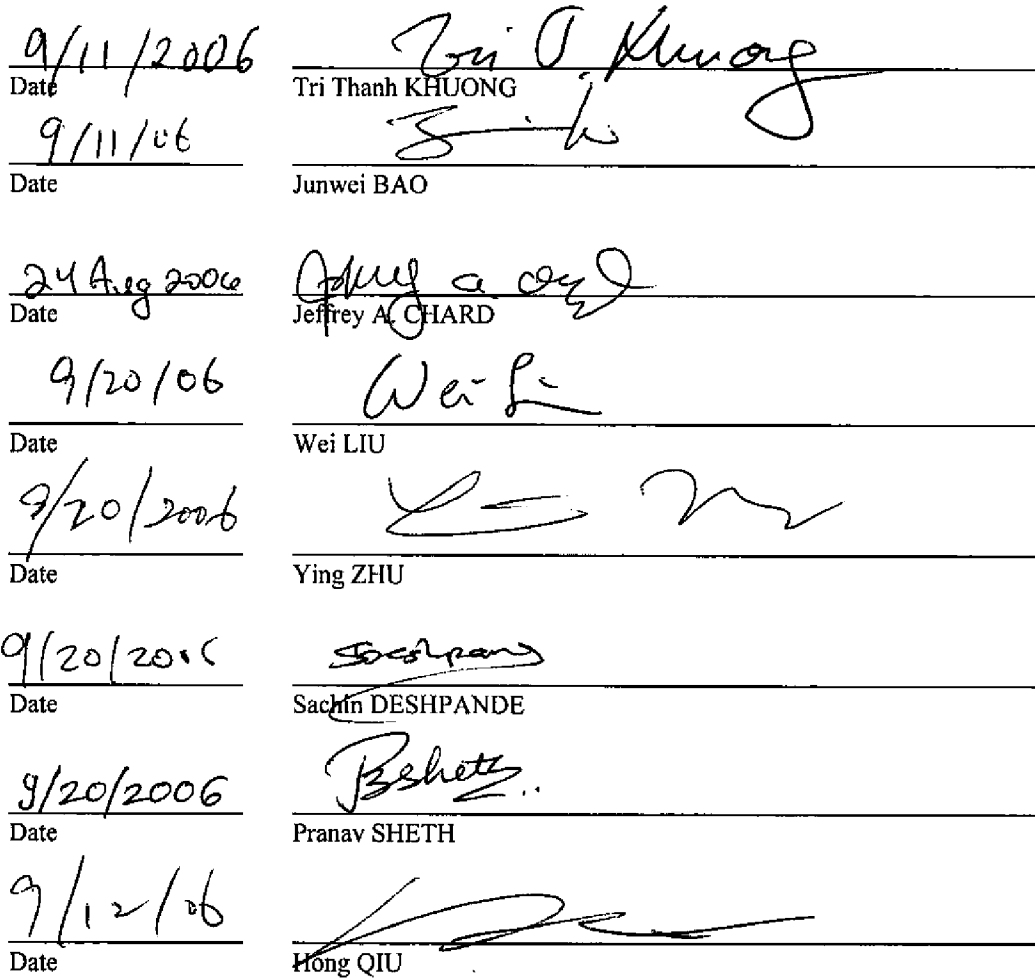 9/11/2006 Tri T Khuong
Date Tri Thanh KHUONG
9/11/06
Date Junwei BAO
24 Aug 2006
Date Jeffrey A. CHARD
9/20/06 Wei Li
Date Wei LIU
9/20/2006
Date Ying ZHU
9/20/2006
Date Sachin DESHPANDE
9/20/2006 Psheth
Date Pranav SHETH
9/12/06
Date Hong QIU